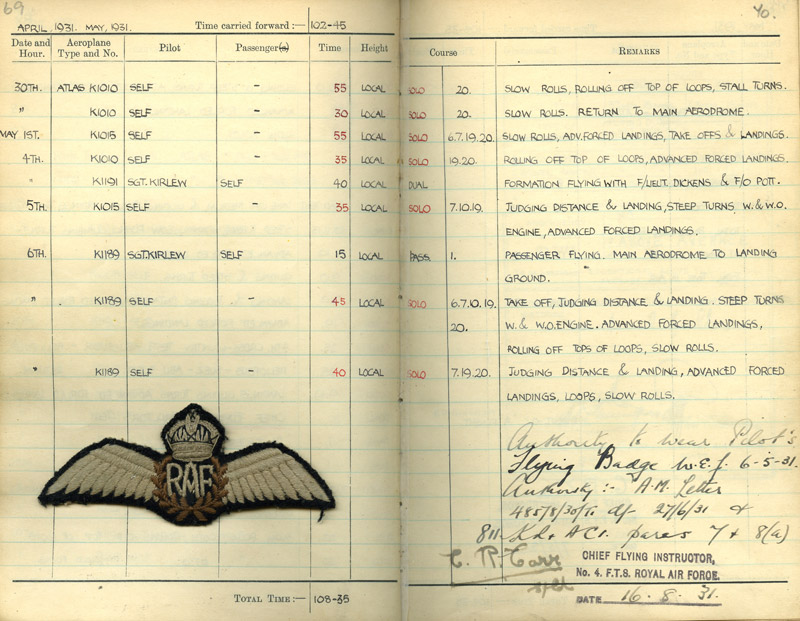 69
APRIL, 1931. MAY, 1931. Time carried forward :— 102-45
Date and Hour. Aeroplane Type and No. Pilot Passenger(s) Time Height
30TH. ATLAS K1010 SELF - 55 LOCAL
" K1010 SELF - 30 LOCAL
MAY 1ST. K1015 SELF - 55 LOCAL
4TH. K1010 SELF - 35 LOCAL
" K1191 SGT. KIRLEW SELF 40 LOCAL
5TH. K1015 SELF - 35 LOCAL
6TH. K1189 SGT. KIRLEW SELF 15 LOCAL
" K1189 SELF - 45 LOCAL
" K1189 SELF - 40 LOCAL
RAF
TOTAL TIME :— 108-35
70.
Course REMARKS
SOLO 20. SLOW ROLLS, ROLLING OFF TOP OF LOOPS, STALL TURNS.
SOLO 20. SLOW ROLLS. RETURN TO MAIN AERODROME.
SOLO 6.7.19.20. SLOW ROLLS, ADV. FORCED LANDINGS, TAKE OFFS & LANDINGS.
SOLO 19.20. ROLLING OFF TOP OF LOOPS, ADVANCED FORCED LANDINGS.
DUAL FORMATION FLYING WITH F/LIEUT. DICKENS & F/O POTT.
SOLO 7.10.19. JUDGING DISTANCE & LANDING, STEEP TURNS W. & W.O.
ENGINE, ADVANCED FORCED LANDINGS.
PASS. 1. PASSENGER FLYING. MAIN AERODROME TO LANDING
GROUND.
SOLO 6.7.10.19. TAKE OFF, JUDGING DISTANCE & LANDING. STEEP TURNS
20. W. & W.O. ENGINE. ADVANCED FORCED LANDINGS,
ROLLING OFF TOPS OF LOOPS, SLOW ROLLS.
SOLO 7.19.20. JUDGING DISTANCE & LANDING, ADVANCED FORCED
LANDINGS, LOOPS, SLOW ROLLS.
Authority to wear Pilot's
Flying Badge w.e.f. 6-5-31.
Authority :- A.M. Letter
27/6/31 &
811 K.R. & A.C.I. paras 7 & 8(a)
C. R. Carr
CHIEF FLYING INSTRUCTOR,
No. 4. F.T.S. ROYAL AIR FORCE.
DATE 16. 8. 31.